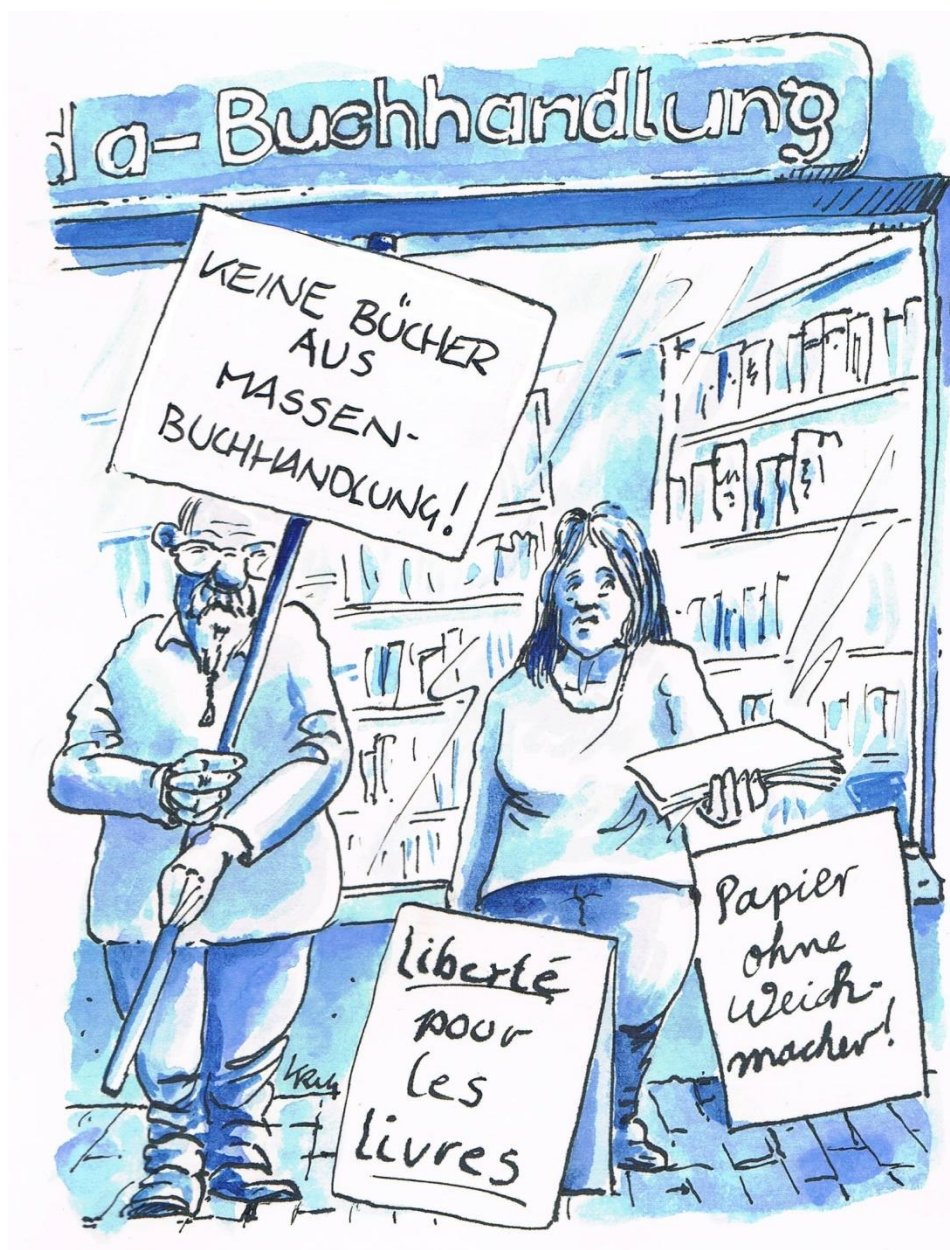 da-Buchhandlung
KEINE BÜCHER
AUS
MASSEN-
BUCHHANDLUNG!
Liberté
pour
les
Livres
Papier
ohne
Weich-
macher!